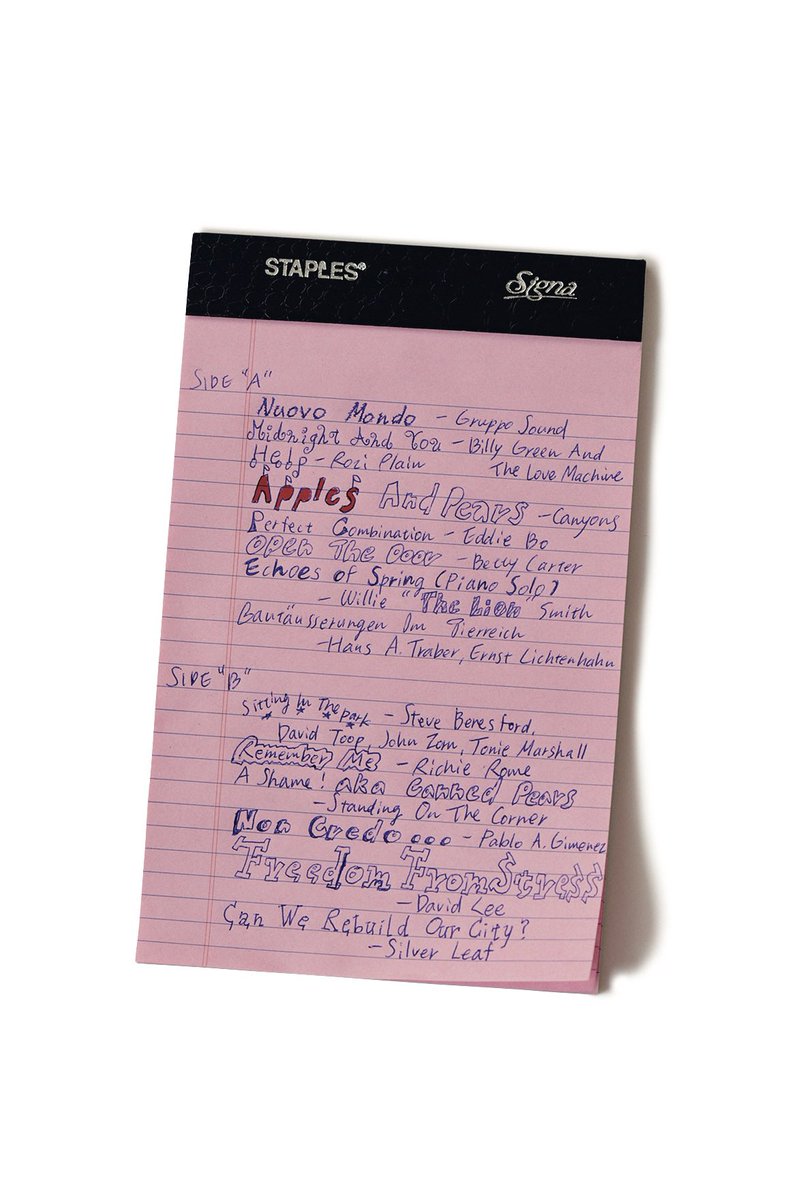 STAPLES®
Signa
SIDE "A"
Nuovo Mondo - Gruppo Sound
Midnight And You - Billy Green And
Help - Rozi Plain The Love Machine
Apples And Pears - Canyons
Perfect Combination - Eddie Bo
Open The Door - Betty Carter
Echoes of Spring (Piano Solo)
- Willie "The Lion Smith
Bautäusserungen Im Tierreich
- Hans A. Traber, Ernst Lichtenhahn
SIDE "B"
Sitting In The park - Steve Beresford,
David Toop, John Zorn, Tonie Marshall
Remember Me - Richie Rome
A Shame! aka Canned Pears
- Standing On The Corner
Non Credo... - Pablo A. Gimenez
Freedom From Stress
- David Lee
Can We Rebuild Our City?
- Silver Leaf